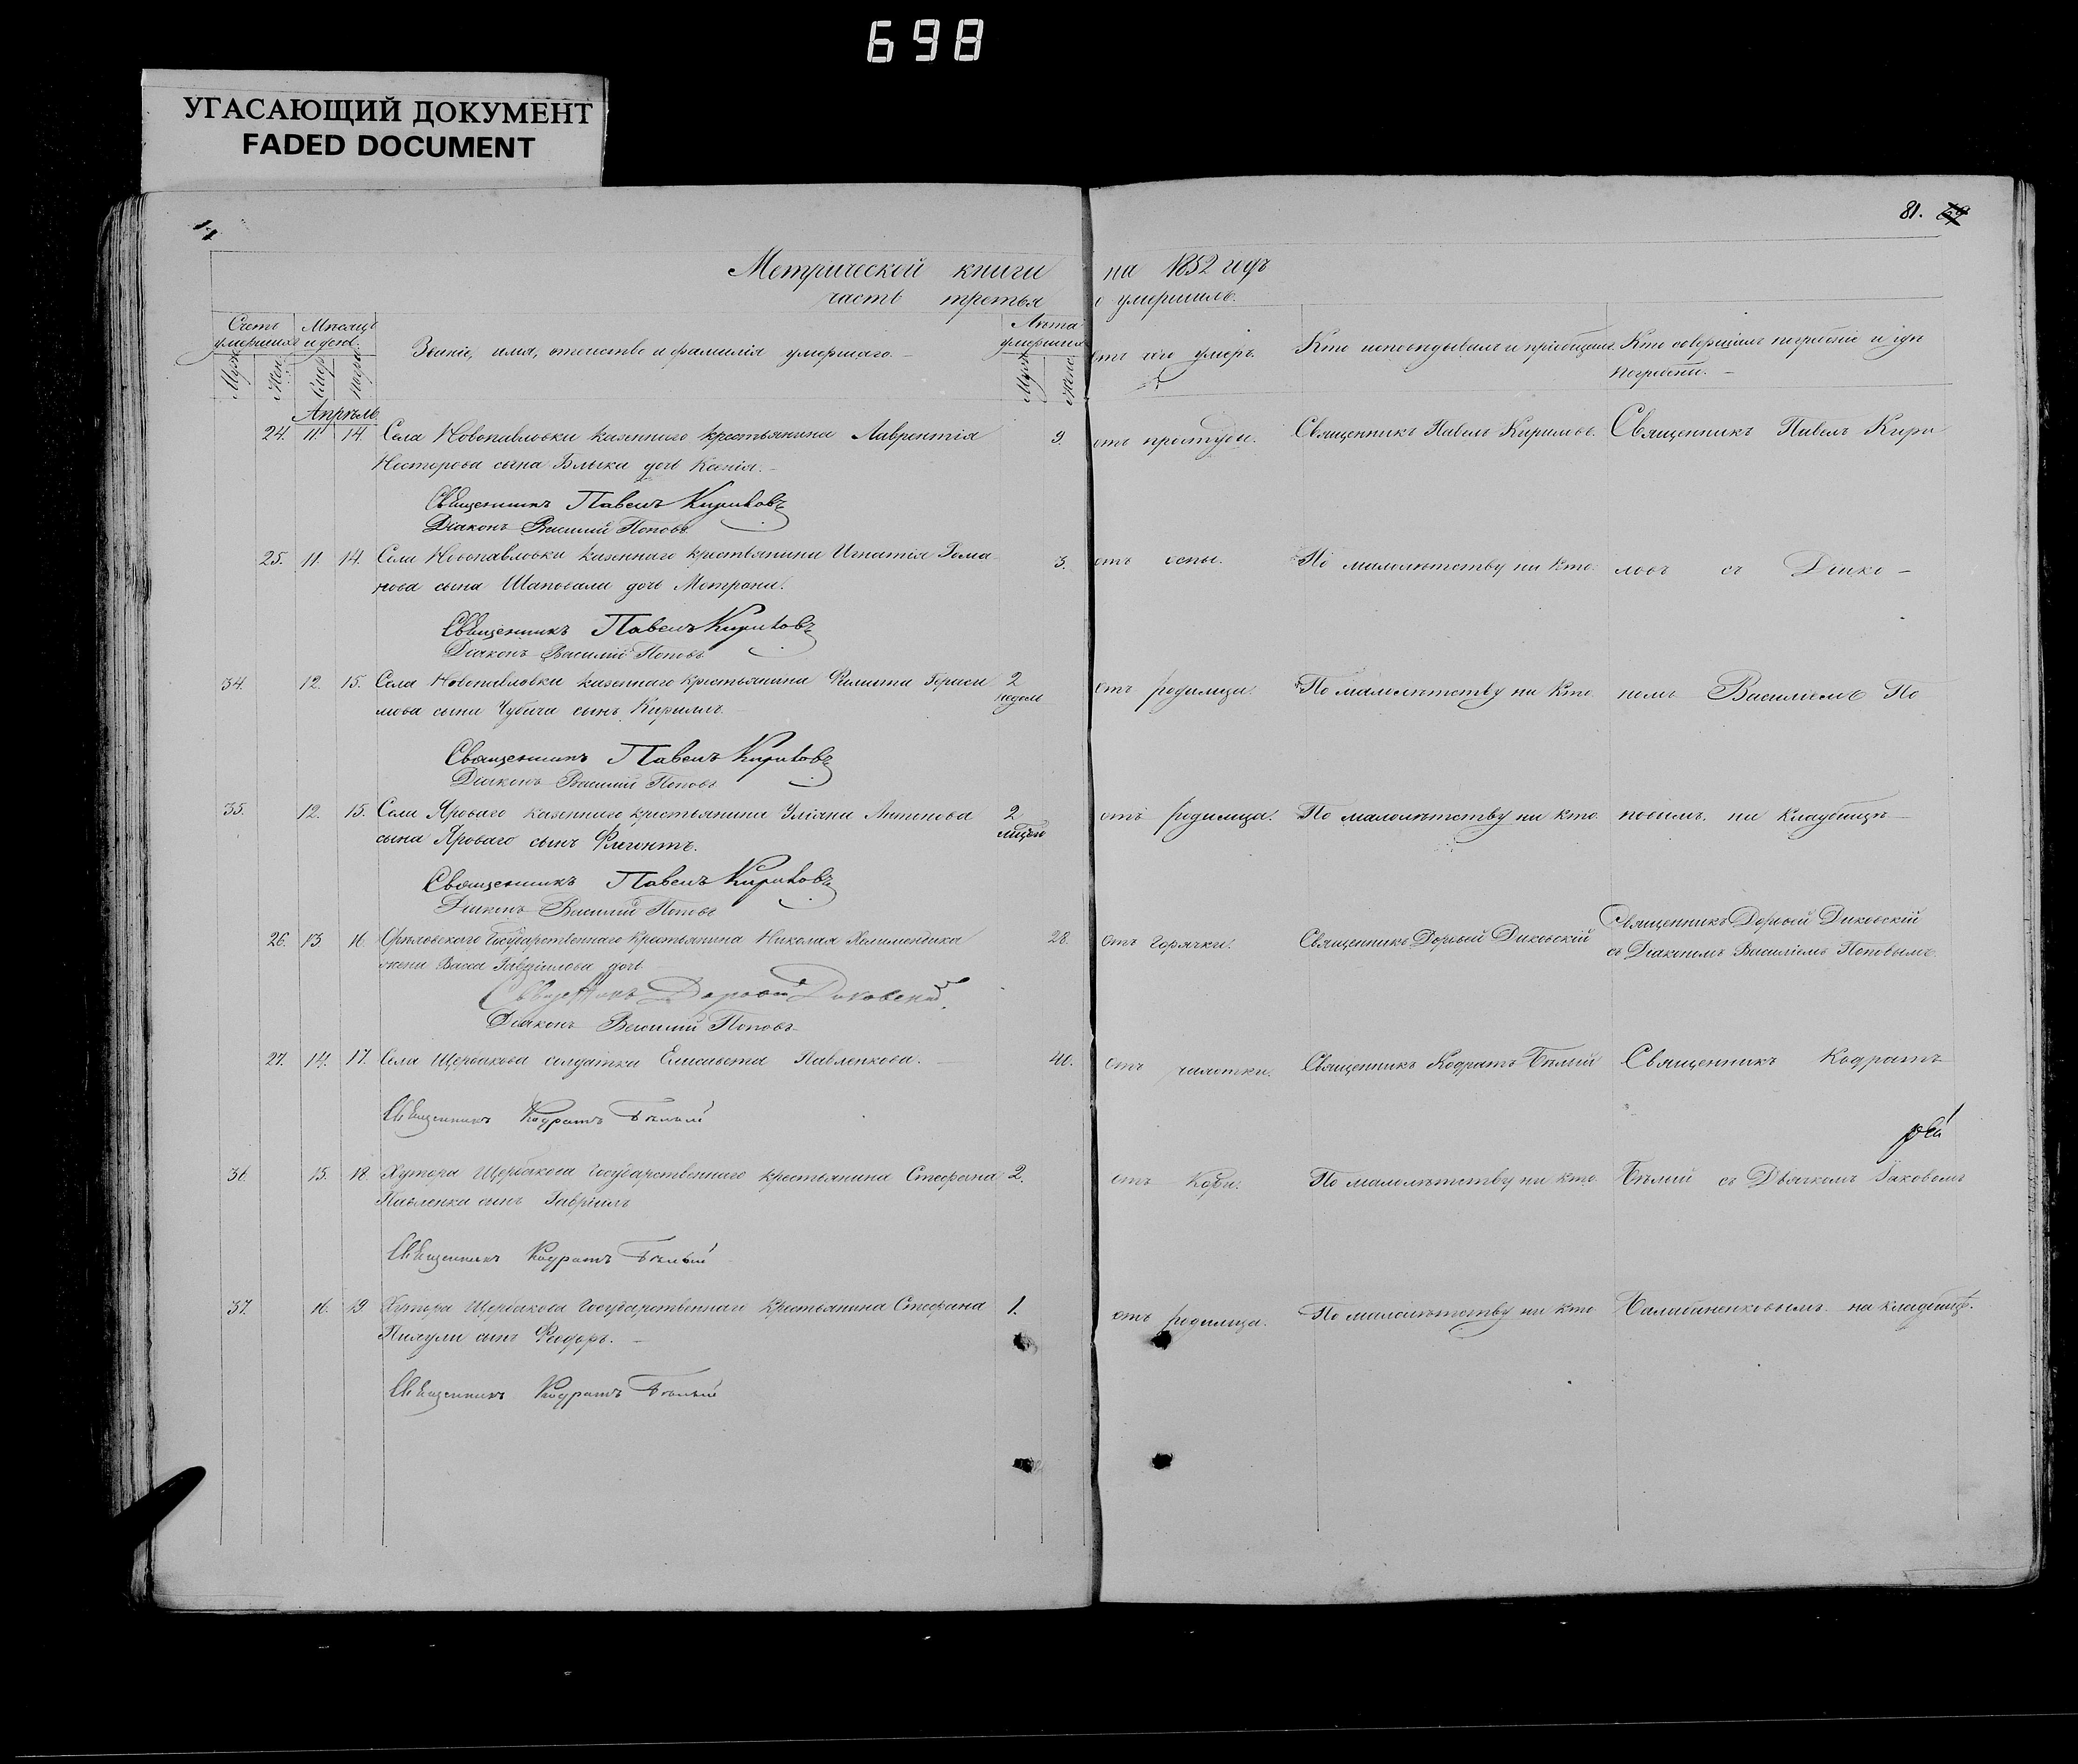 698
УГАСАЮЩИЙ ДОКУМЕНТ
FADED DOCUMENT
81.
Метрической книги на 1852 годъ
часть третья о умершихъ.
Счетъ умершихъ
Мѣсяцъ и день
Званіе, имя, отчество и фамилія умершаго.
Лѣта умершихъ
отъ чего умеръ.
Кто исповѣдывалъ и пріобщалъ
Кто совершалъ погребеніе и гдѣ погребены.
Муж. Жен.
Апрѣль
24. 11. 14. Села Новопавловки казеннаго крестьянина Лаврентія 9. отъ простуды. Священникъ Павелъ Кириловъ. Священникъ Павелъ Кири
Нестерова сына Бѣлыка дочь
Священникъ Павелъ Кириловъ
Діаконъ Василий Поповъ
25. 11. 14. Села Новопавловки казеннаго крестьянина Игнатія Рома 3. отъ оспы. По малолѣтству ни кто. ловъ съ Діако-
нова сына Шаповала дочь Матрона.
Священникъ Павелъ Кириловъ
Діаконъ Василий Поповъ
34. 12. 15. Села Новопавловки казеннаго крестьянина Филиппа Гераси 2 недел отъ родимца. По малолѣтству ни кто. номъ Василіемъ По
мова сына Чубича сынъ Кириллъ.
Священникъ Павелъ Кириловъ
Діаконъ Василий Поповъ
35. 12. 15. Села Яроваго казеннаго крестьянина Уліяна Антонова 2 отъ родимца. По малолѣтству ни кто. повымъ. на кладбищѣ
сына Яроваго сынъ Флегонтъ.
Священникъ Павелъ Кириловъ
Діаконъ Василий Поповъ
26. 13 16. Государственнаго крестьянина Николая 28. отъ горячки. Священникъ Дорофей Диковскій Священникъ Дорофей Диковскій
жена Васса Гавріилова дочь съ Діакономъ Василіемъ Поповымъ.
Священникъ Дорофей Диковский
Діаконъ Василий Поповъ
27. 14. 17. Села Щербакова солдатка Елисавета Павленкова. 40. отъ чахотки. Священникъ Кодратъ Бѣлый Священникъ Кодратъ
Священникъ Кодратъ Бѣлый
36. 15. 18. Хутора Щербакова Государственнаго крестьянина Стефана 2. отъ Кори. По малолѣтству ни кто. Бѣлый съ Дьячкомъ Іаковомъ
Павленка сынъ Гавріилъ
Священникъ Кодратъ Бѣлый
37. 16. 19. Хутора Щербакова Государственнаго Крестьянина Стефана 1. отъ родимца. По малолѣтству ни кто на кладбищѣ.
сынъ Феодоръ.
Священникъ Кодратъ Бѣлый